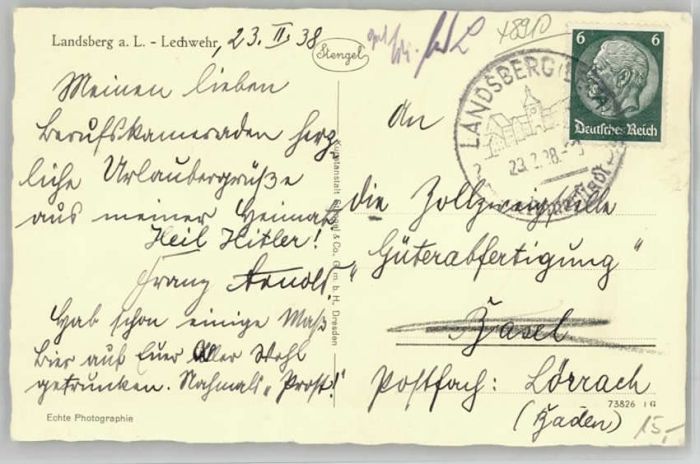 Landsberg a. L. - Lechwehr, 23. II. 38
Stengel
Meinen lieben
Berufskameraden herz-
liche Urlaubergrüße
aus meiner Heimat
Heil Hitler!
Franz Arnold.
Hab schon einige Maß
Bier auf Euer Aller Wohl
getrunken. Nochmals "Prost!"
Echte Photographie
Kunstanstalt Stengel & Co. G. m. b. H. Dresden
4890
6 6
Deutsches Reich
LANDSBERG (LECH)
23.2.38.
An
die Zollzweigstelle
"Güterabfertigung"
Basel
Postfach: Lörrach
(Baden)
73826
15,-